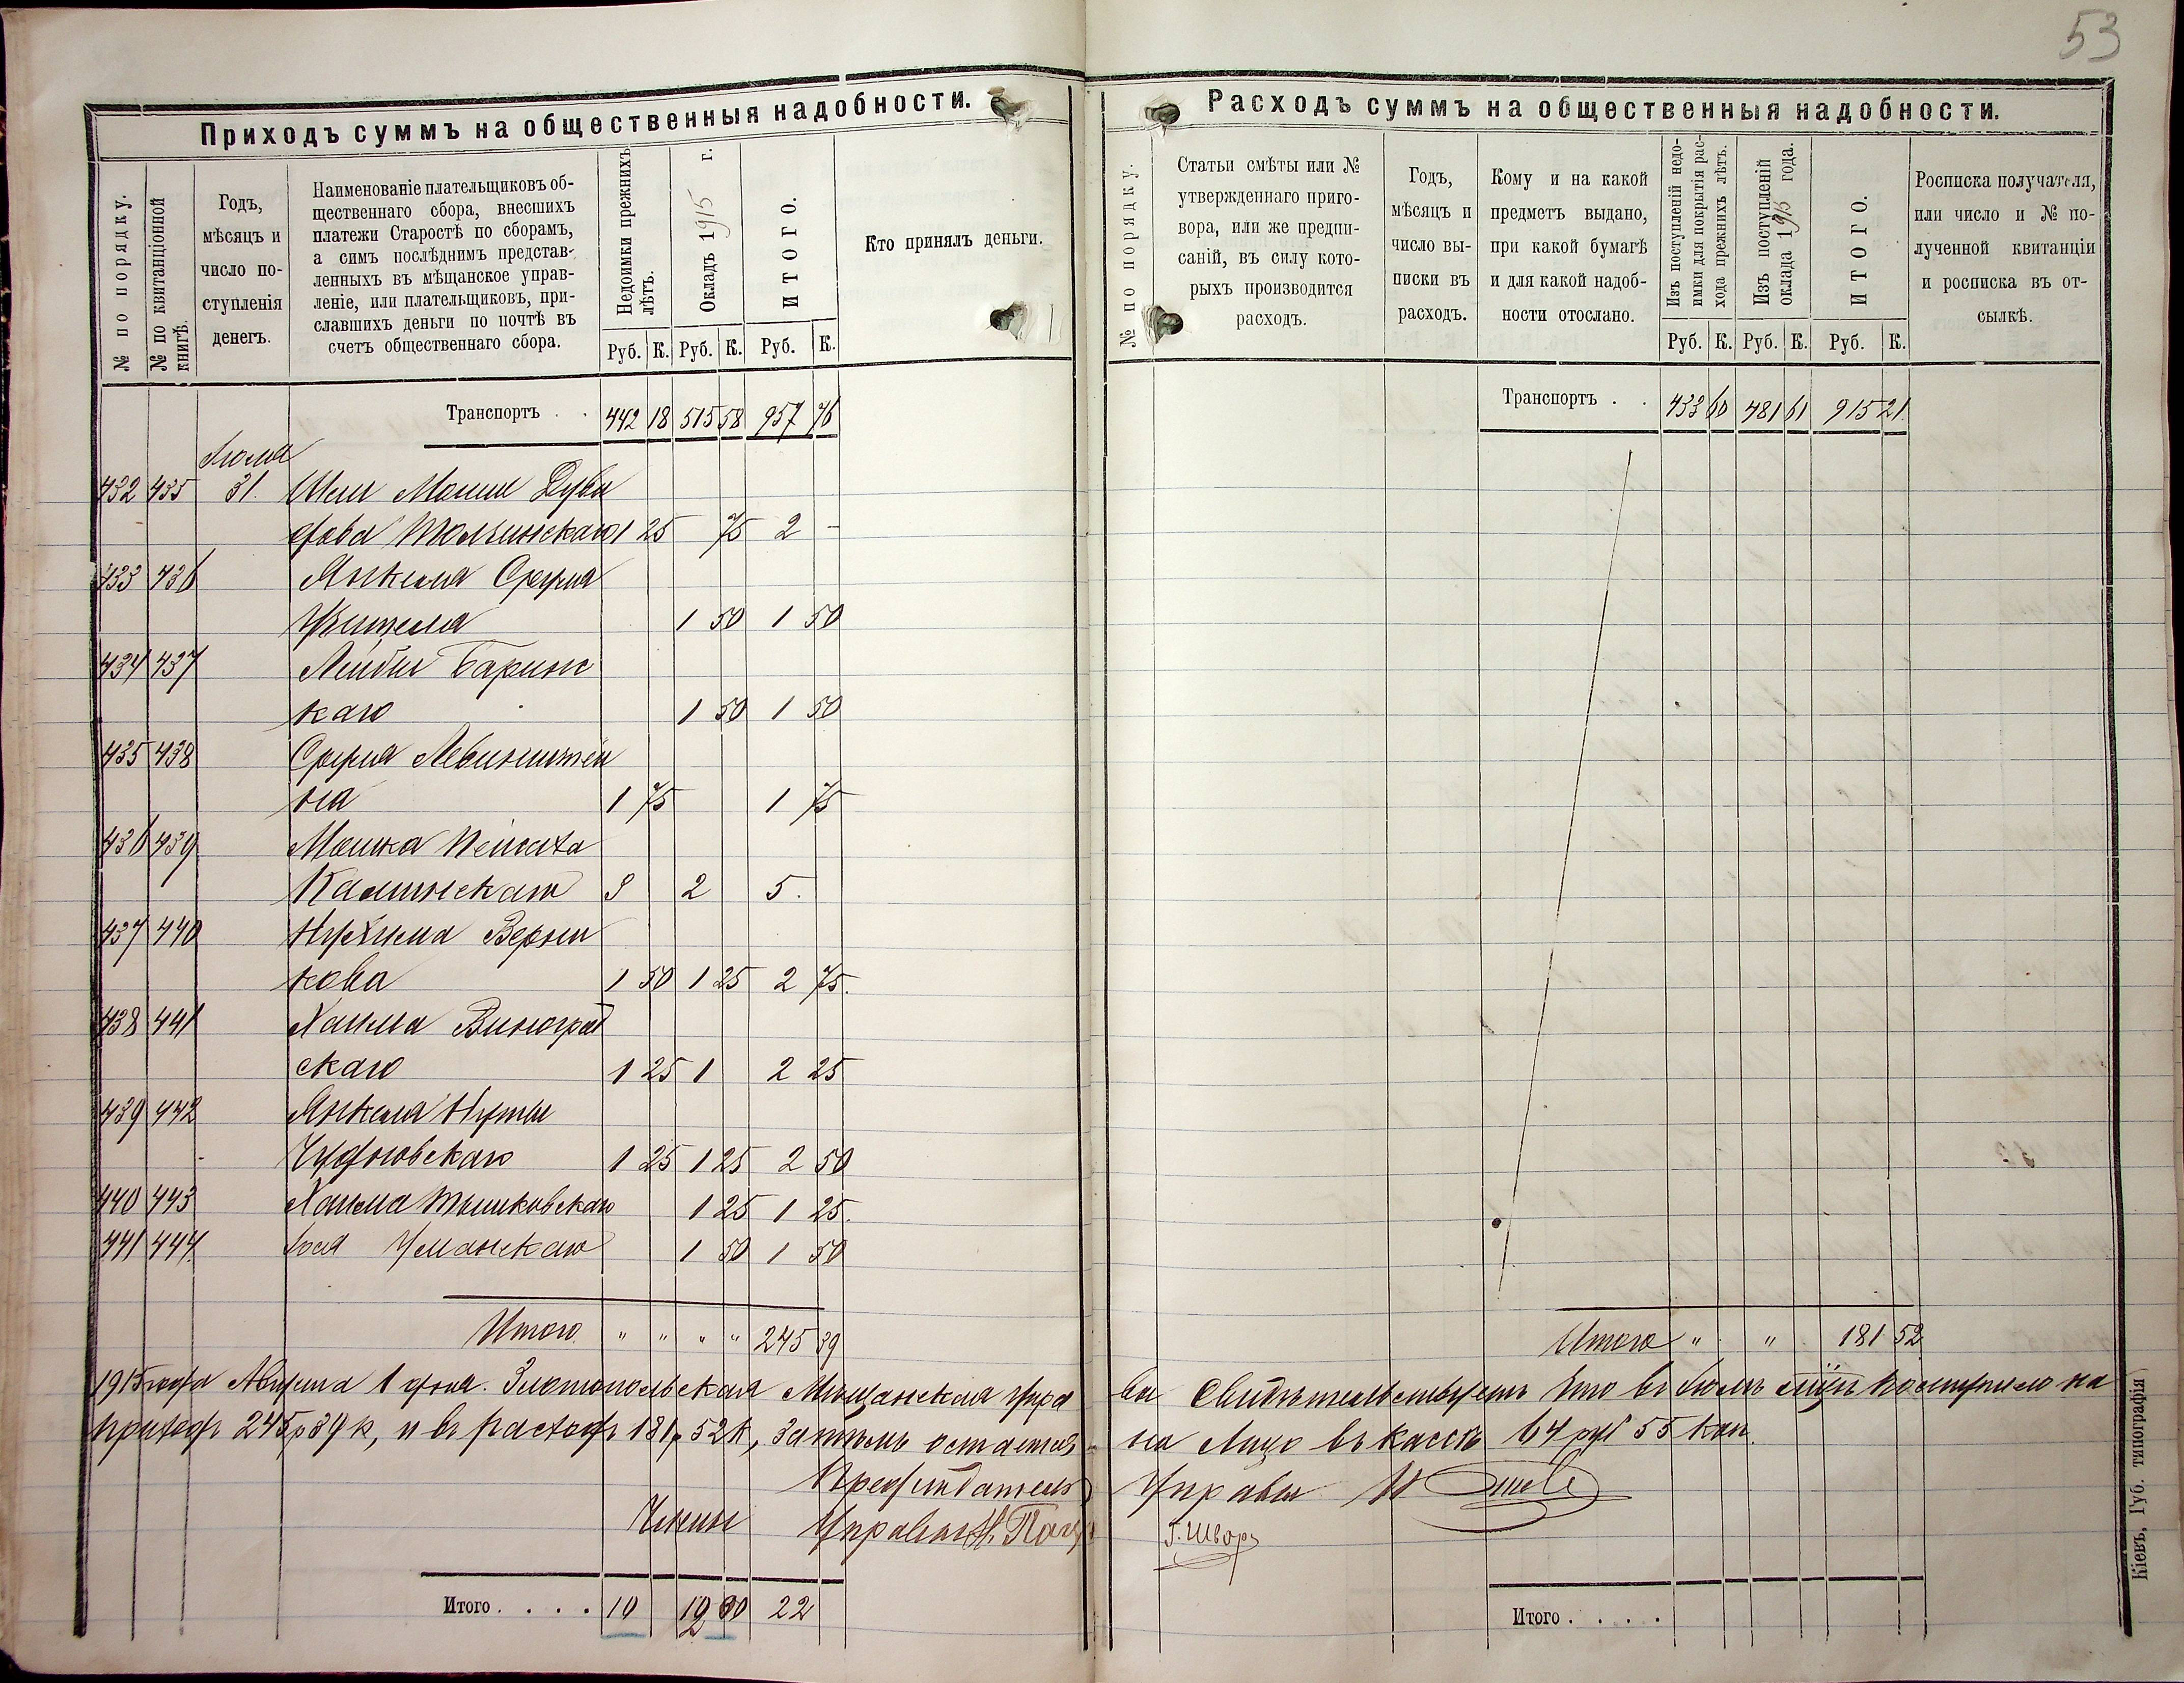 53
Приходъ суммъ на общественныя надобности.
№ по порядку.
№ по квитанціонной книгѣ.
Годъ,
мѣсяцъ и
число по-
ступленія
денегъ.
Наименованіе плательщиковъ об-
щественнаго сбора, внесшихъ
платежи Старостѣ по сборамъ,
а симъ послѣднимъ представ-
ленныхъ въ мѣщанское управ-
леніе, или плательщиковъ, при-
славшихъ деньги по почтѣ въ
счетъ общественнаго сбора.
Недоимки прежнихъ
лѣтъ.
Окладъ 1915 г.
ИТОГО.
Кто принялъ деньги.
Руб. К. Руб. К. Руб. К.
Транспортъ . . 442 18 515 58 957 76
Іюля
432 435 31. Шм Мошк Дуви
дова Толчинскаго 1 25 75 2 -
433 436 Янкеля Сруля
Цвителя 1 50 1 50
434 437 Лейби Баринс
каго 1 50 1 50
435 438 Сруля Левинштей
на 1 75 1 75
436 439 Мошка Пейсаха
Калинскаго 3 2 5.
437 440 Нухима Верни
кова 1 50 1 25 2 75.
438 441 Хаима Виноград
скаго 1 25 1 2 25
439 442 Янкеля Нуты
Чудновскаго 1 25 1 25 2 50
440 443 Хаима Тышковскаго 1 25 1 25.
441 444. Іося Уманскаго 1 50 1 50
Итого " " " " 245 39
1915 года Августа 1 дня. Златопольская Мѣщанская Упра
приходъ 245 р 39 к, и въ расходъ 181 р 52 к, Затѣмъ остается
Предсѣдатель
Члены Управы Н.
Итого . . . . 10 12 00 22
Расходъ суммъ на общественныя надобности.
№ по порядку.
Статьи смѣты или №
утвержденнаго приго-
вора, или же предпи-
саній, въ силу кото-
рыхъ производится
расходъ.
Годъ,
мѣсяцъ и
число вы-
писки въ
расходъ.
Кому и на какой
предметъ выдано,
при какой бумагѣ
и для какой надоб-
ности отослано.
Изъ поступленій недо-
имки для покрытія рас-
хода прежнихъ лѣтъ.
Изъ поступленій
оклада 1915 года.
ИТОГО.
Росписка получателя,
или число и № по-
лученной квитанціи
и росписка въ от-
сылкѣ.
Руб. К. Руб. К. Руб. К.
Транспортъ . . 433 60 481 61 915 21.
Итого " " 181 52
ва Свидѣтельствуетъ что въ Іюлѣ мцѣ поступило на
на Лицо въ кассѣ 64 руб 55 коп.
Управы
Г. Шворъ
Итого . . . .
Кіевъ, Губ. типографія